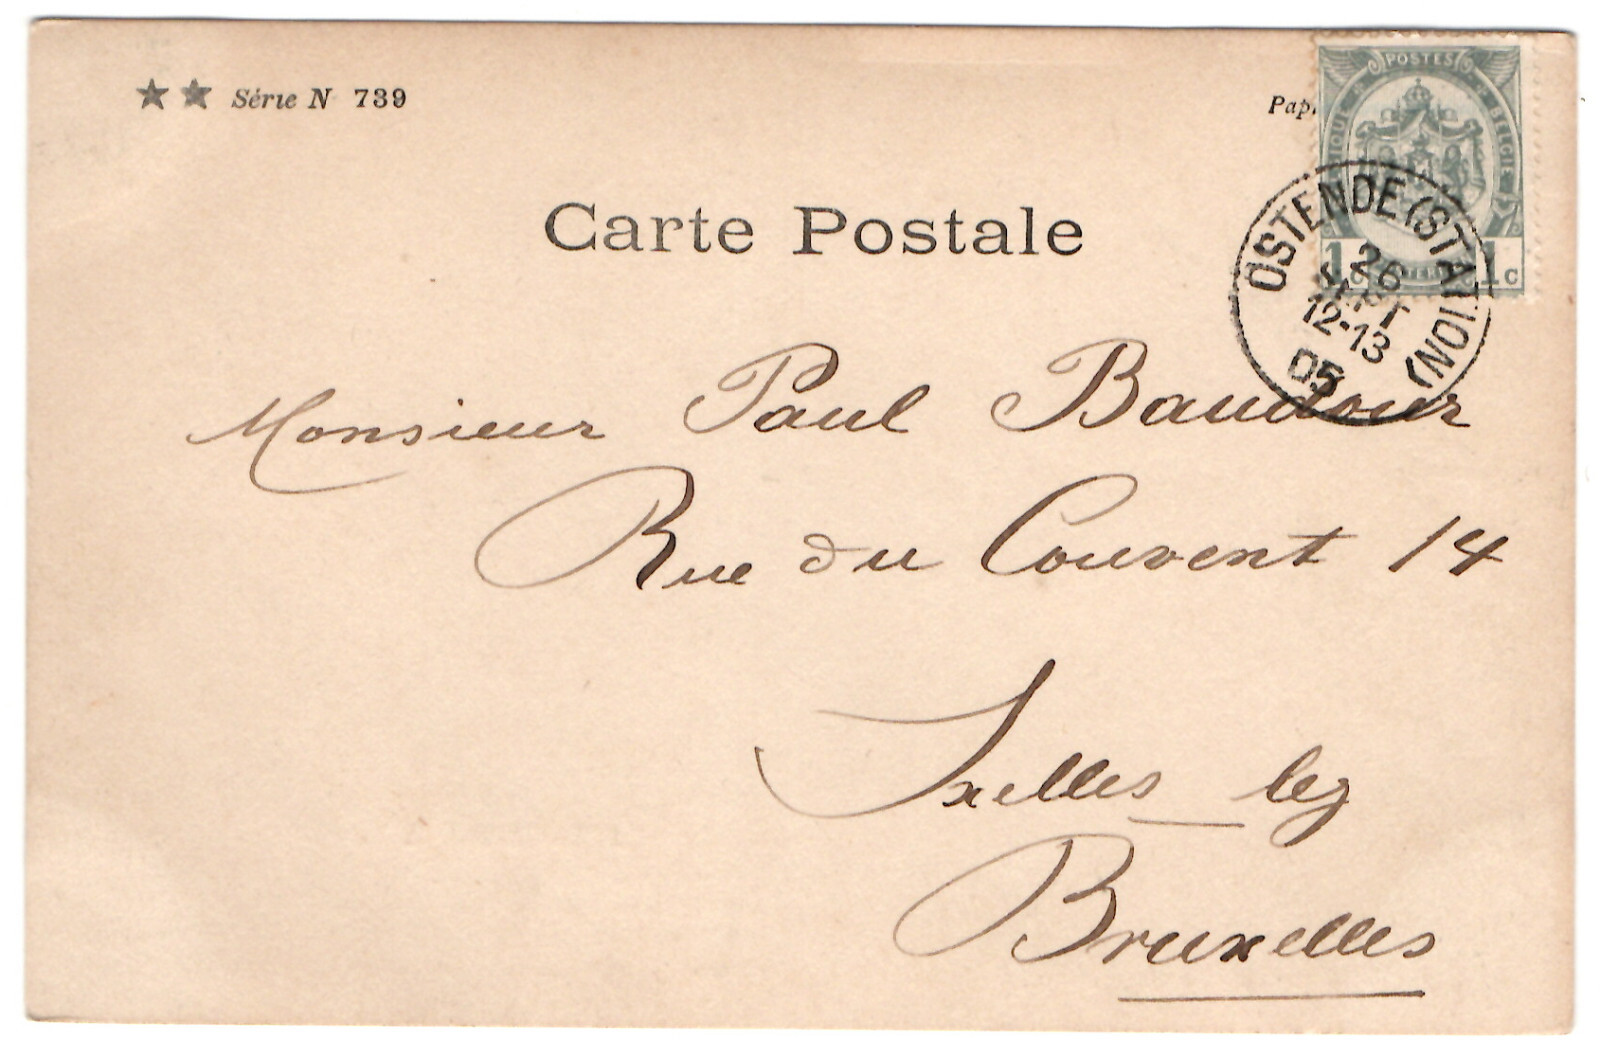 ★★ Série N 739
Pap
Carte Postale
POSTES
BELGIE
1c 1c
OSTENDE (STATION)
26
SEPT
12-13
05
Monsieur Paul Baudour
Rue du Couvent 14
Ixelles lez
Bruxelles